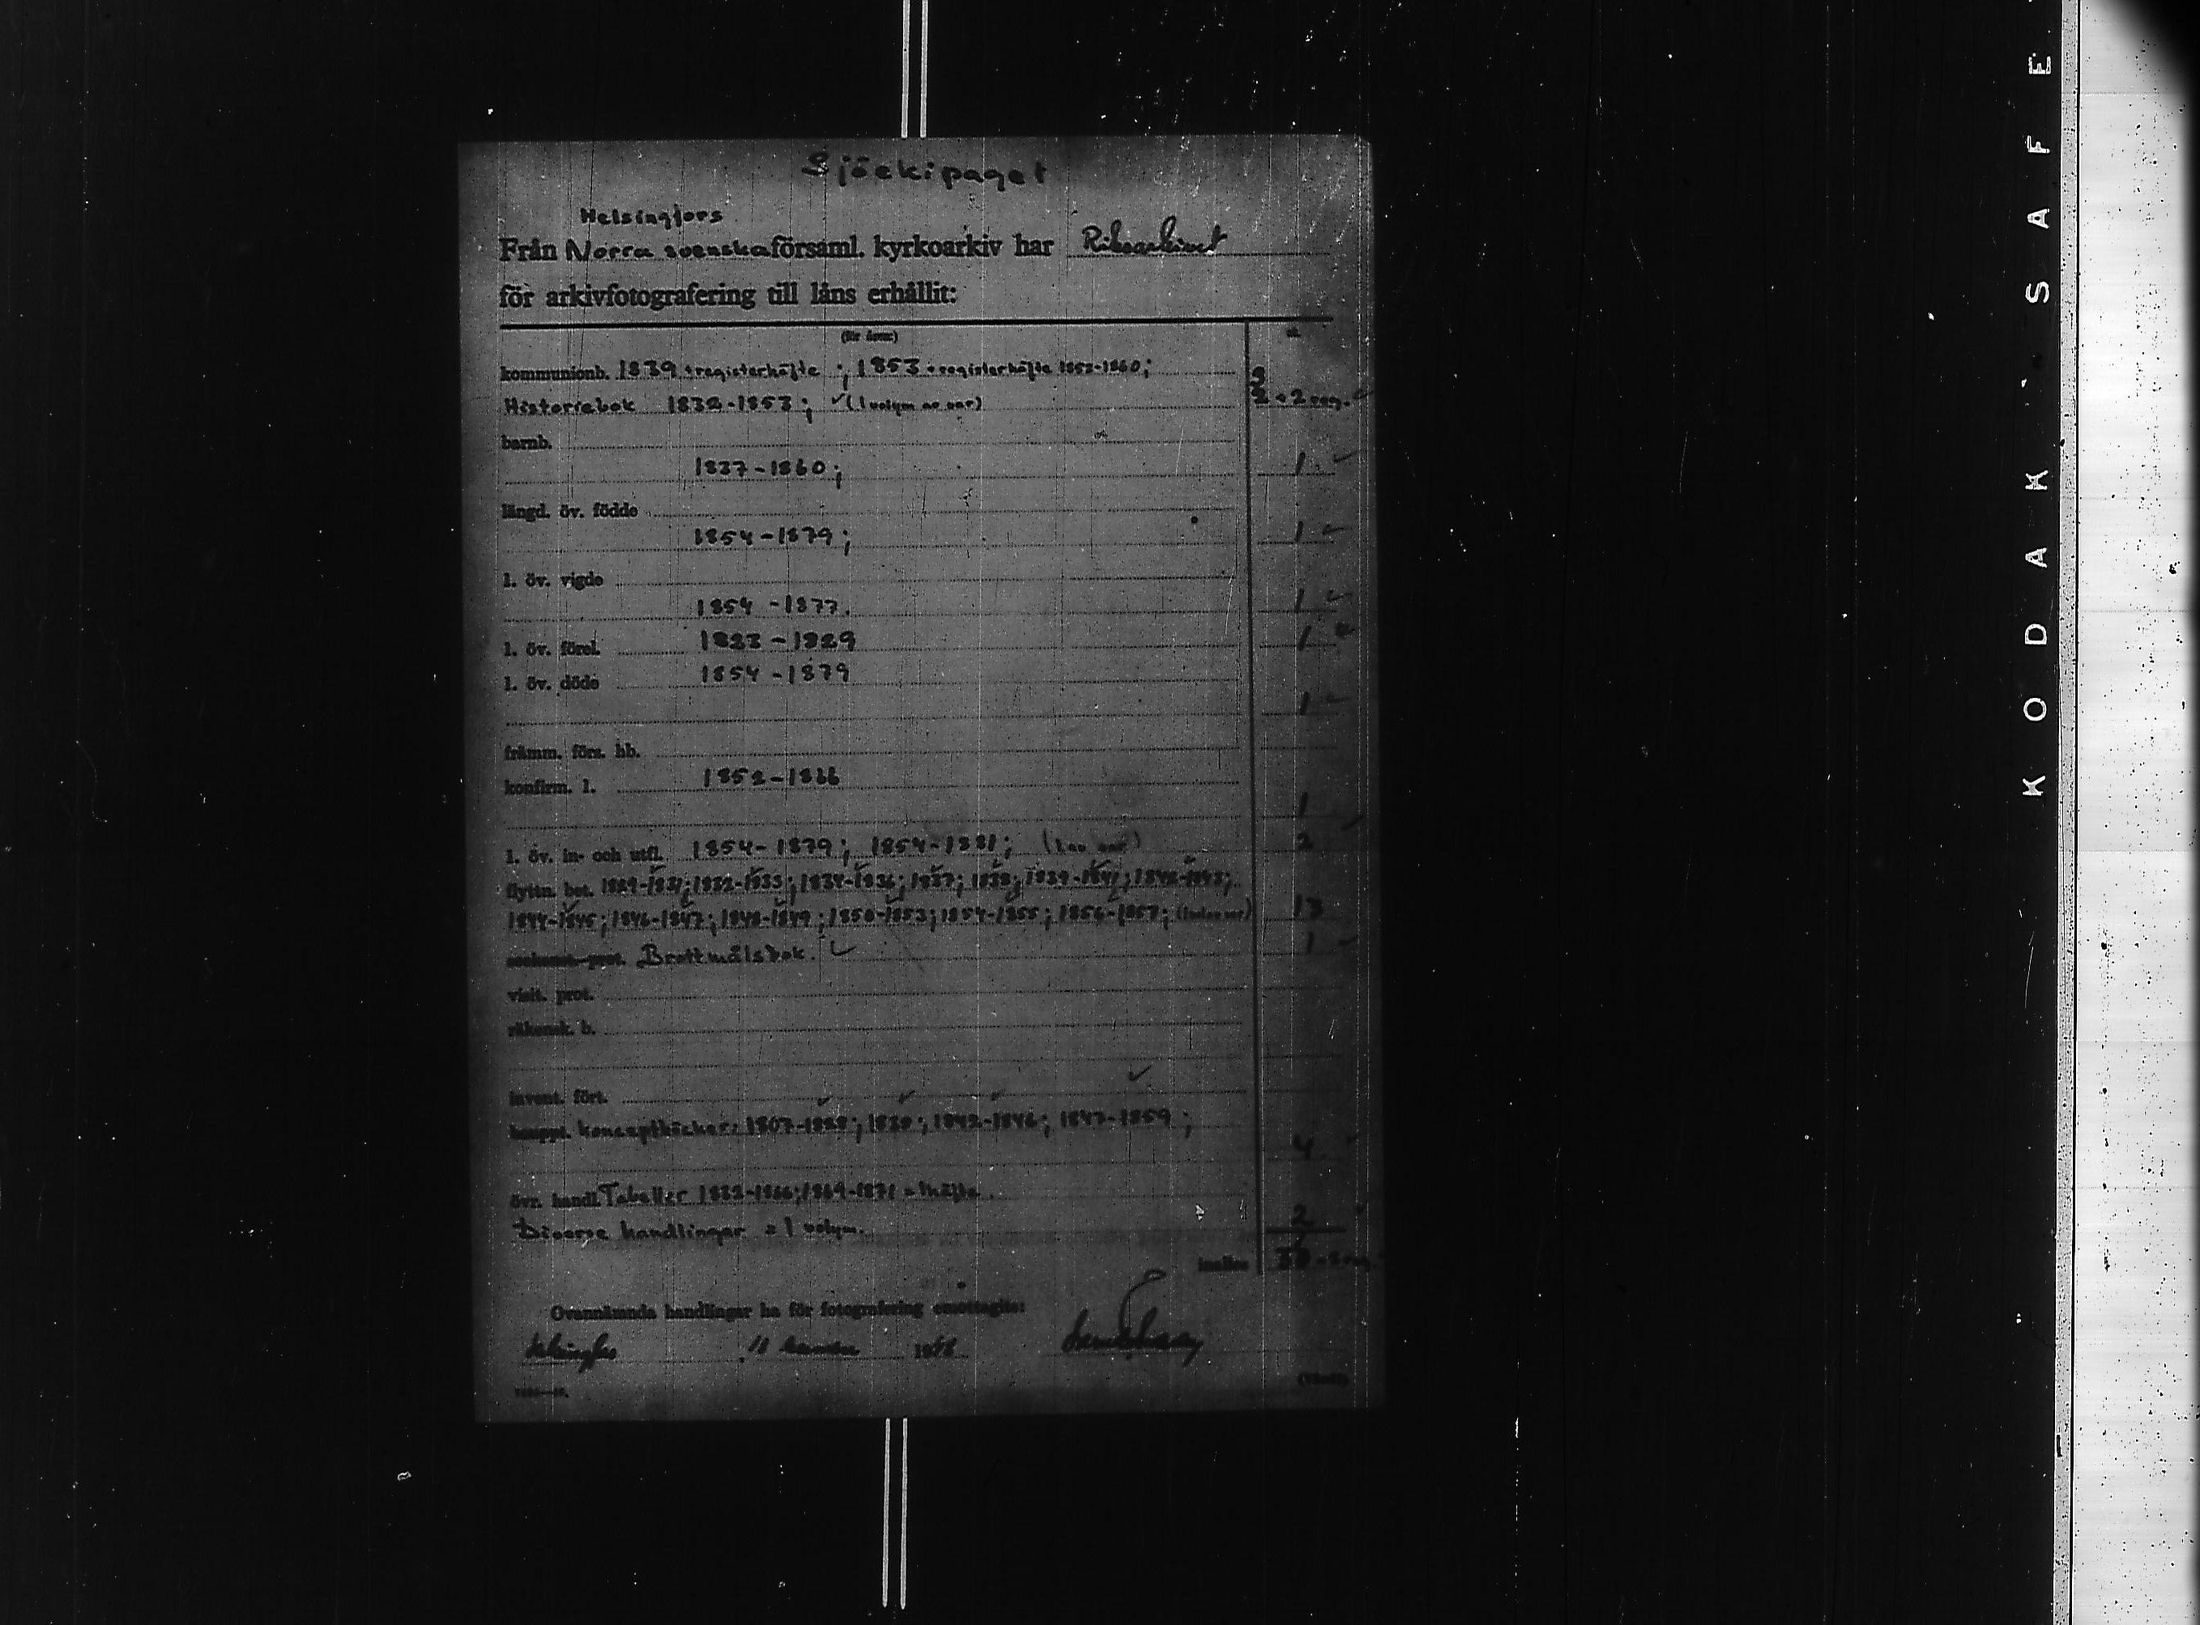 Sjöekipaget
Helsingfors
Från Norra svenska församl. kyrkoarkiv har Riksarkivet
för arkivfotografering till låns erhållit:
kommunionb. 1839 + registerhäfte ; 1853 + registerhäfte 1853-1860;
Historiebok 1832-1853; ✓ (1 volym av var) 2 + 2 reg. ✓
barnb.
1837-1860; 1 ✓
längd. öv. födde
1854-1879; 1 ✓
l. öv. vigde
1854-1877. 1 ✓
l. öv. förel. 1823-1829 1 ✓
l. öv. döde 1854-1879
1 ✓
främm. förs. hb.
konfirm. l. 1852-1866
1
l. öv. in- och utfl. 1854-1879; 1854-1881; (1 av var) 2
flyttn. bet. 1829-1831; 1832-1833; 1834-1836; 1837; 1838; 1839-1841; 1842-1843;
1844-1845; 1846-1847; 1848-1849; 1850-1853; 1854-1855; 1856-1857; 13
Brottmålsbok. ✓ 1 ✓
visit. prot.
räkensk. b.
invent. fört.
konceptböcker: 1807-1828; 1830; 1842-1846; 1847-1859;
4
övr. handl. Tabeller 1833-1866; 1869-1871 = 1 häfte.
Diverse handlingar = 1 volym. 2
inalles
Ovannämnda handlingar ha för fotografering emottagits:
Helsingfors
KODAK SAFE